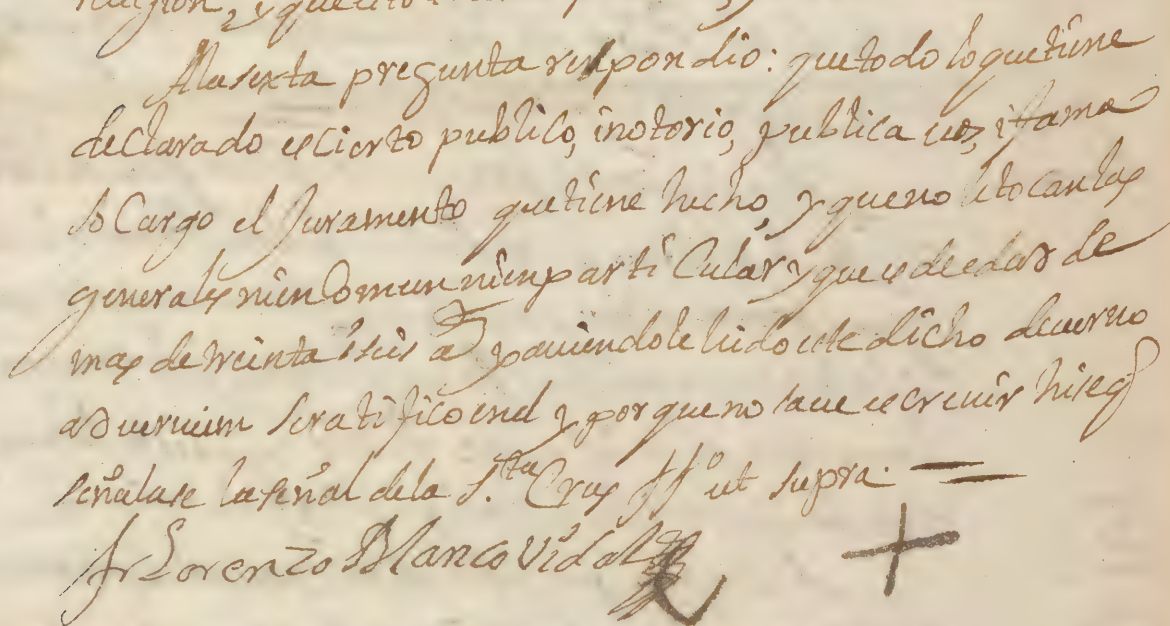 religion, y que esto
Ala sexta pregunta respondio: que todo lo que tiene
declarado es cierto publico, inotorio, publica uoz, i ffama
so Cargo el Juramento que tiene hecho, y que no le tocan las
generales nien Comun nienparticular y que es de edad de
mas de treinta iseis as y auiendole leido este dicho deuerno
ad uernum se ratifico enel y por que no saue escreuir hise q
señalase la señal dela S.ta Crus ff.o ut supra. =
fr Lorenzo Blanco Vidal +